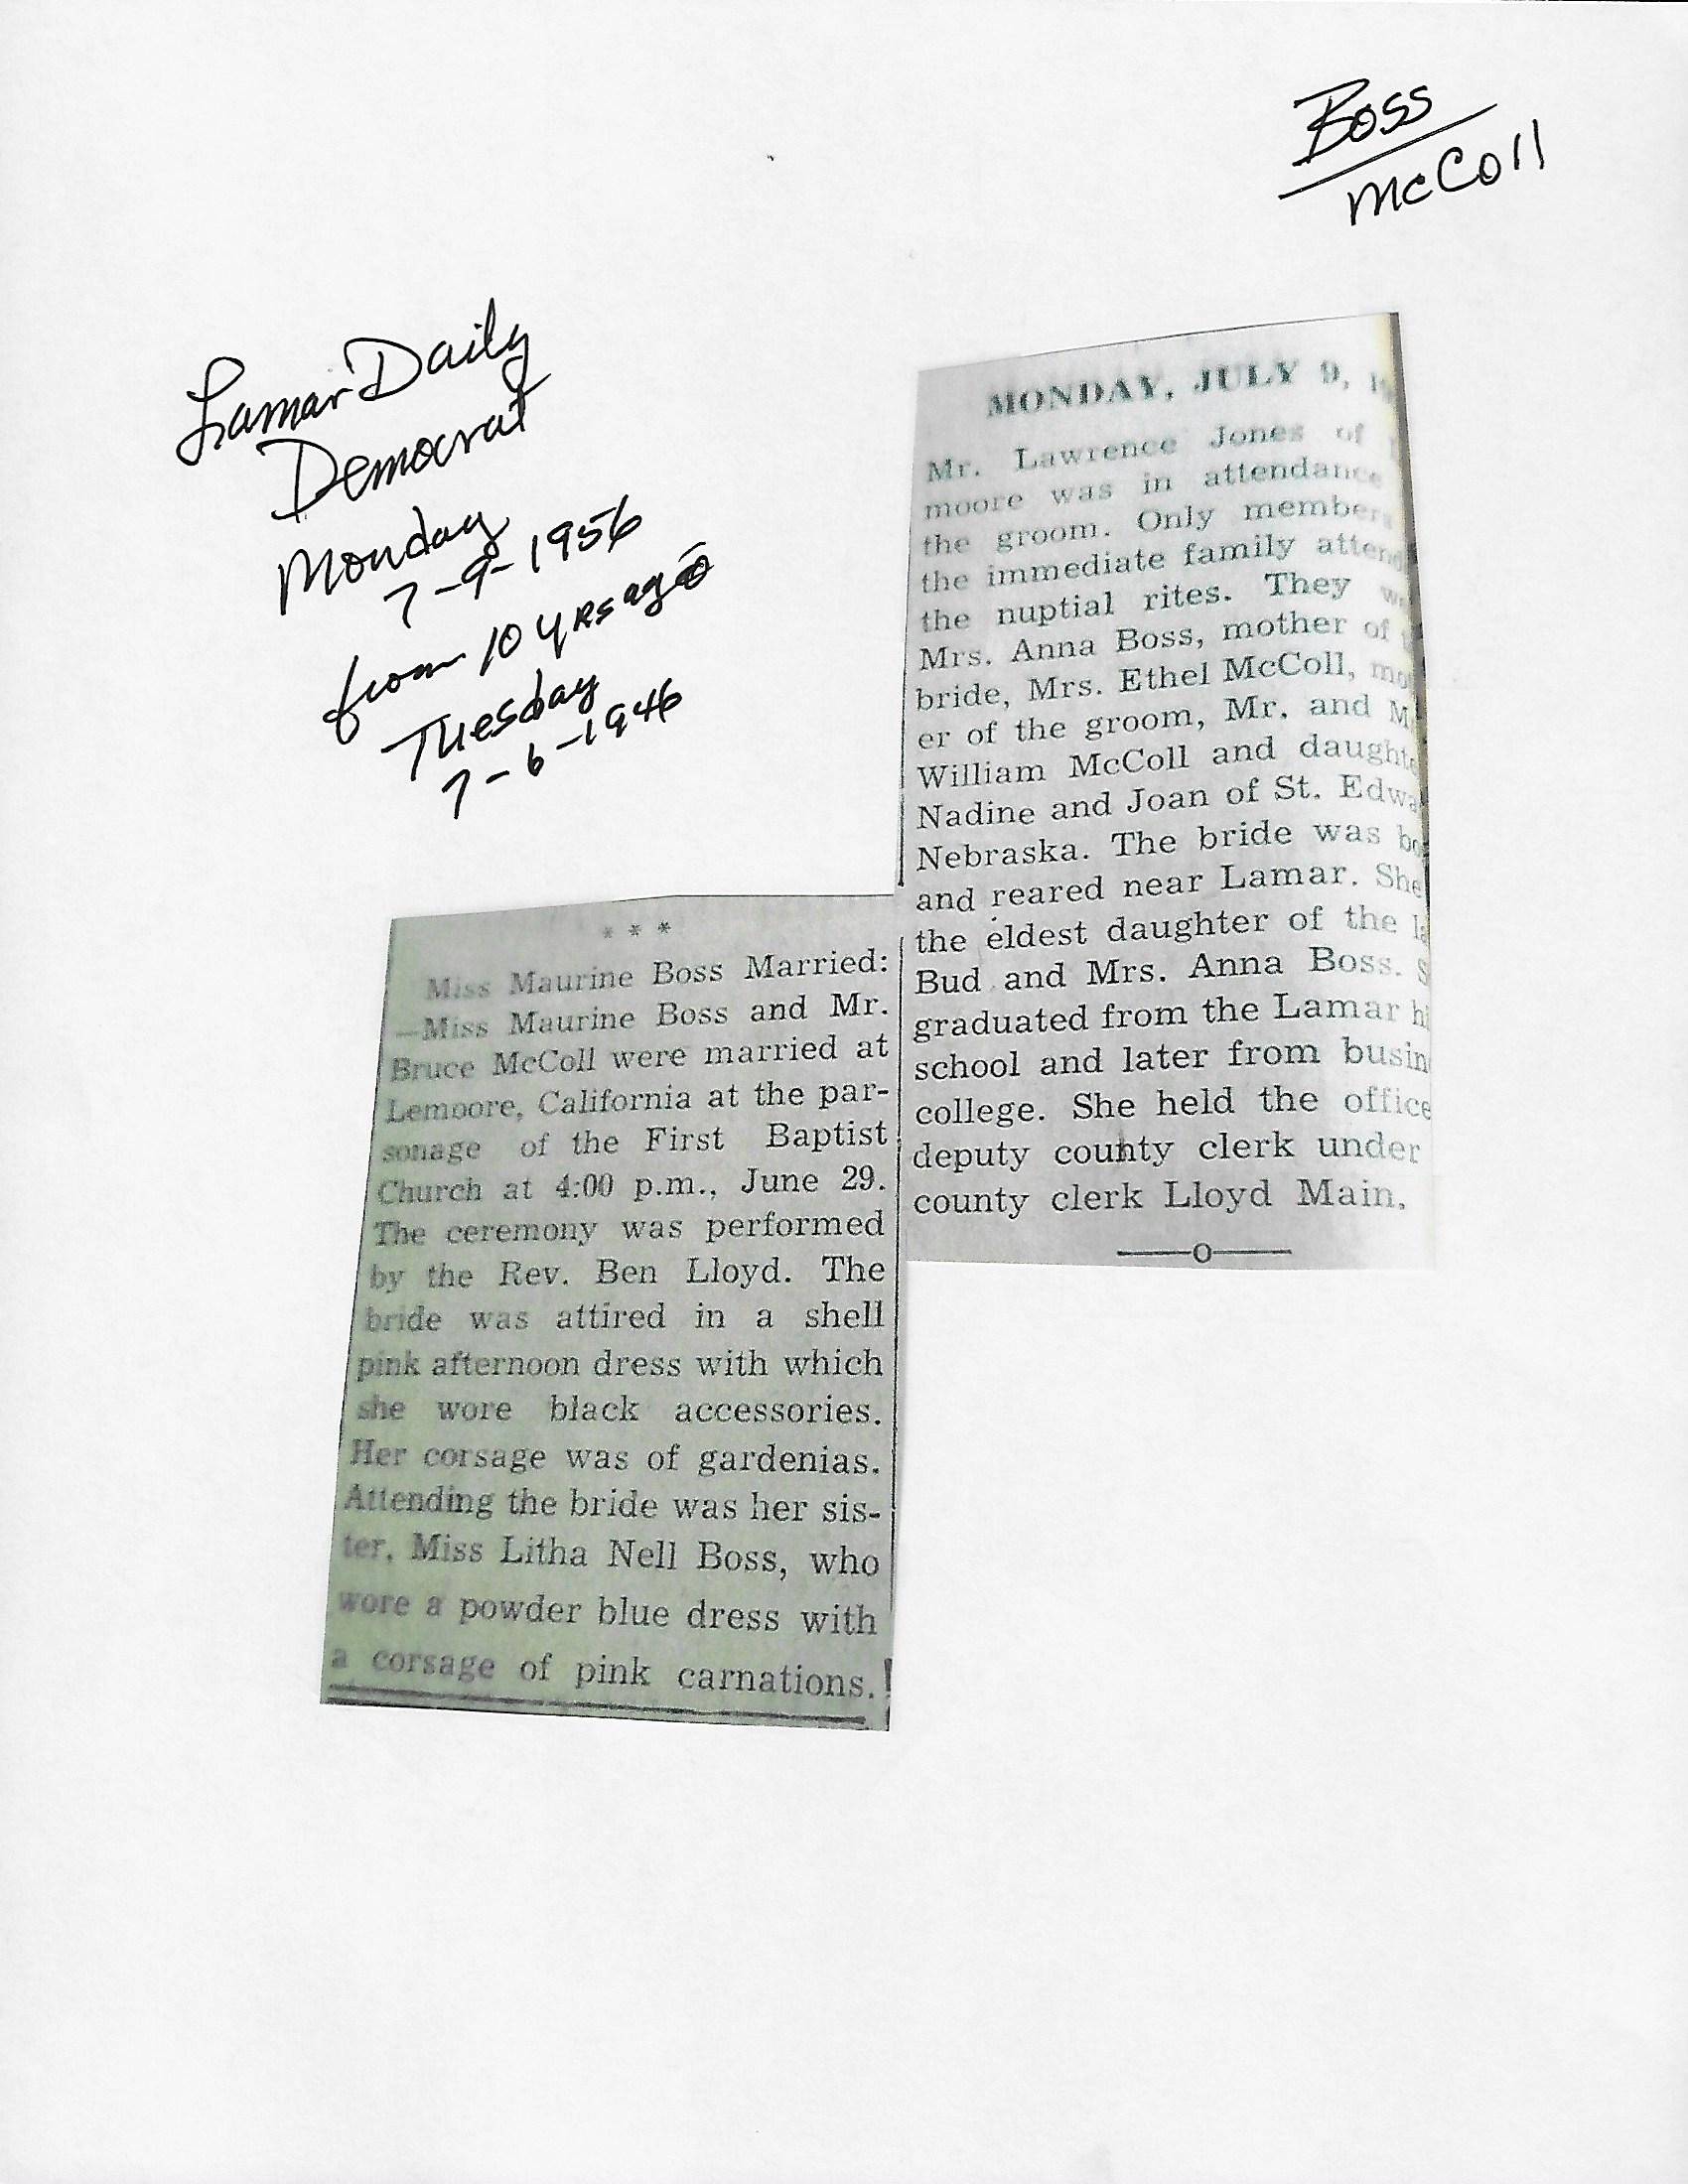 Boss
McColl
Lamar Daily
Democrat
Monday
7-9-1956
from 10 yrs ago
Tuesday
7-6-1946
* * *
Miss Maurine Boss Married:
—Miss Maurine Boss and Mr.
Bruce McColl were married at
Lemoore, California at the par-
sonage of the First Baptist
Church at 4:00 p.m., June 29.
The ceremony was performed
by the Rev. Ben Lloyd. The
bride was attired in a shell
pink afternoon dress with which
she wore black accessories.
Her corsage was of gardenias.
Attending the bride was her sis-
ter, Miss Litha Nell Boss, who
wore a powder blue dress with
a corsage of pink carnations.
MONDAY, JULY 9,
Mr. Lawrence Jones of
moore was in attendance
the groom. Only member
the immediate family attend
the nuptial rites. They
Mrs. Anna Boss, mother of
bride, Mrs. Ethel McColl, mo
er of the groom, Mr. and M
William McColl and daught
Nadine and Joan of St. Edwa
Nebraska. The bride was bo
and reared near Lamar. She
the eldest daughter of the la
Bud and Mrs. Anna Boss. S
graduated from the Lamar hi
school and later from busin
college. She held the office
deputy county clerk under
county clerk Lloyd Main.
——o——